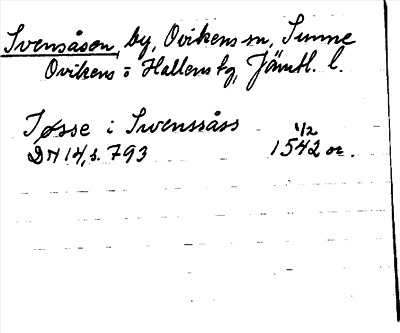 Svensåsen, by, Ovikens sn, Sunne
Ovikens o Hallens tg, Jämtl. l.
Tosse i Swenssåss 1/2
DN 14, s. 793 1542 or.